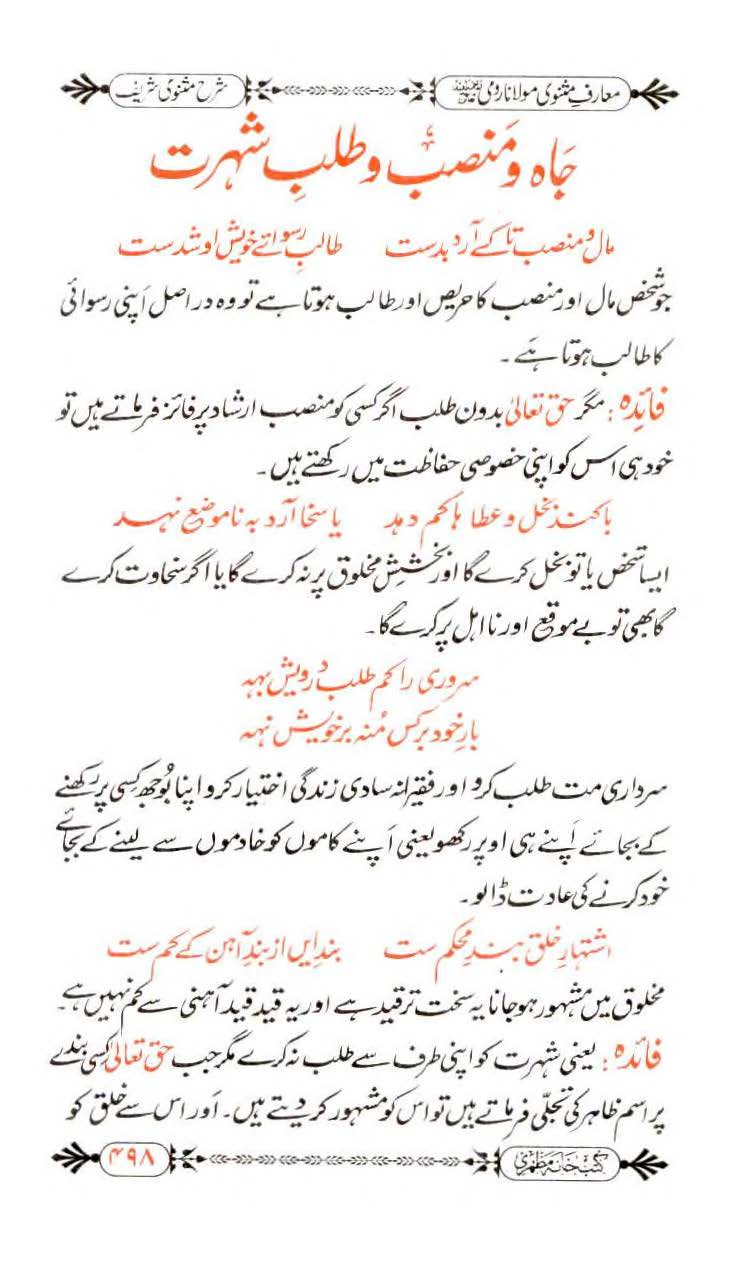 معارفِ مثنوی مولانا رومی    شرح مثنوی شریف
جَاہ و مَنصب و طلبِ شہرت
مال و منصب تا کے آرد بدست    طالبِ رسوائے خویش او شدست
جو شخص مال اور منصب کا حریص اور طالب ہوتا ہے تو وہ در اصل اَپنی رسوائی
کا طالب ہوتا ہَے ۔
فائدہ : مگر حق تعالیٰ بدون طلب اگر کسی کو منصب ارشاد پر فائز فرماتے ہیں تو
خود ہی اس کو اپنی خصوصی حفاظت میں رکھتے ہیں ۔
یا کند بخل و عطا ہا کم دہد    یا سخا آرد بہ ناموضع نہد
ایسا شخص یا تو بخل کرے گا اور بخشش مخلوق پر نہ کرے گا یا اگر سخاوت کرے
گا بھی تو بے موقع اور نا اہل پر کرے گا ۔
سروری را کم طلب درویش بہہ
بارِ خود بر کس مُنہ بر خویش نہہ
سرداری مت طلب کرو اور فقیرانہ سادی زندگی اختیار کرو اپنا بُوجھ کسی پر رکھنے
کے بجائے اَپنے ہی اوپر رکھو یعنی اَپنے کاموں کو خادموں سے لینے کے بجائے
خود کرنے کی عادت ڈالو ۔
اشتہارِ خلق بندِ محکم ست    بندِ ایں از بندِ آہن کے کم ست
مخلوق میں مشہور ہو جانا یہ سخت تر قید ہے اور یہ قید قید آہنی سے کم نہیں ہے ۔
فائدہ : یعنی شہرت کو اپنی طرف سے طلب نہ کرے مگر جب حق تعالیٰ کسی بندے
پر اسم ظاہر کی تجلّی فرماتے ہیں تو اس کو مشہور کر دیتے ہیں ۔ اَور اس سے خلق کو
کتب خانہ مظہری    ۴۹۸